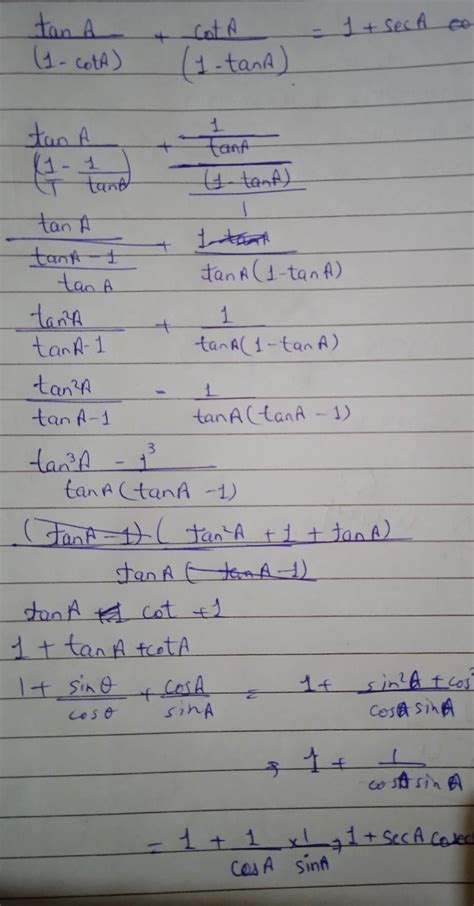 tanA/(1-cotA) + cotA/(1-tanA) = 1+secA co
tanA/(1/1 - 1/tanA) + (1/tanA)/((1-tanA)/1)
tanA/((tanA-1)/tanA) + 1/(tanA(1-tanA))
tan²A/(tanA-1) + 1/(tanA(1-tanA))
tan²A/(tanA-1) - 1/(tanA(tanA-1))
(tan³A - 1³)/(tanA(tanA-1))
(tanA-1)(tan²A+1+tanA)/(tanA(tanA-1))
tanA + cot +1
1+tanA+cotA
1+ sinθ/cosθ + cosA/sinA = 1+ (sin²A+cos²)/(cosA sinA)
⇒ 1+ 1/(cosA sinA)
= 1+ 1/cosA × 1/sinA ⇒ 1+secA cosec